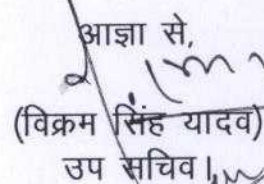 आज्ञा से,
(विक्रम सिंह यादव)
उप सचिव।